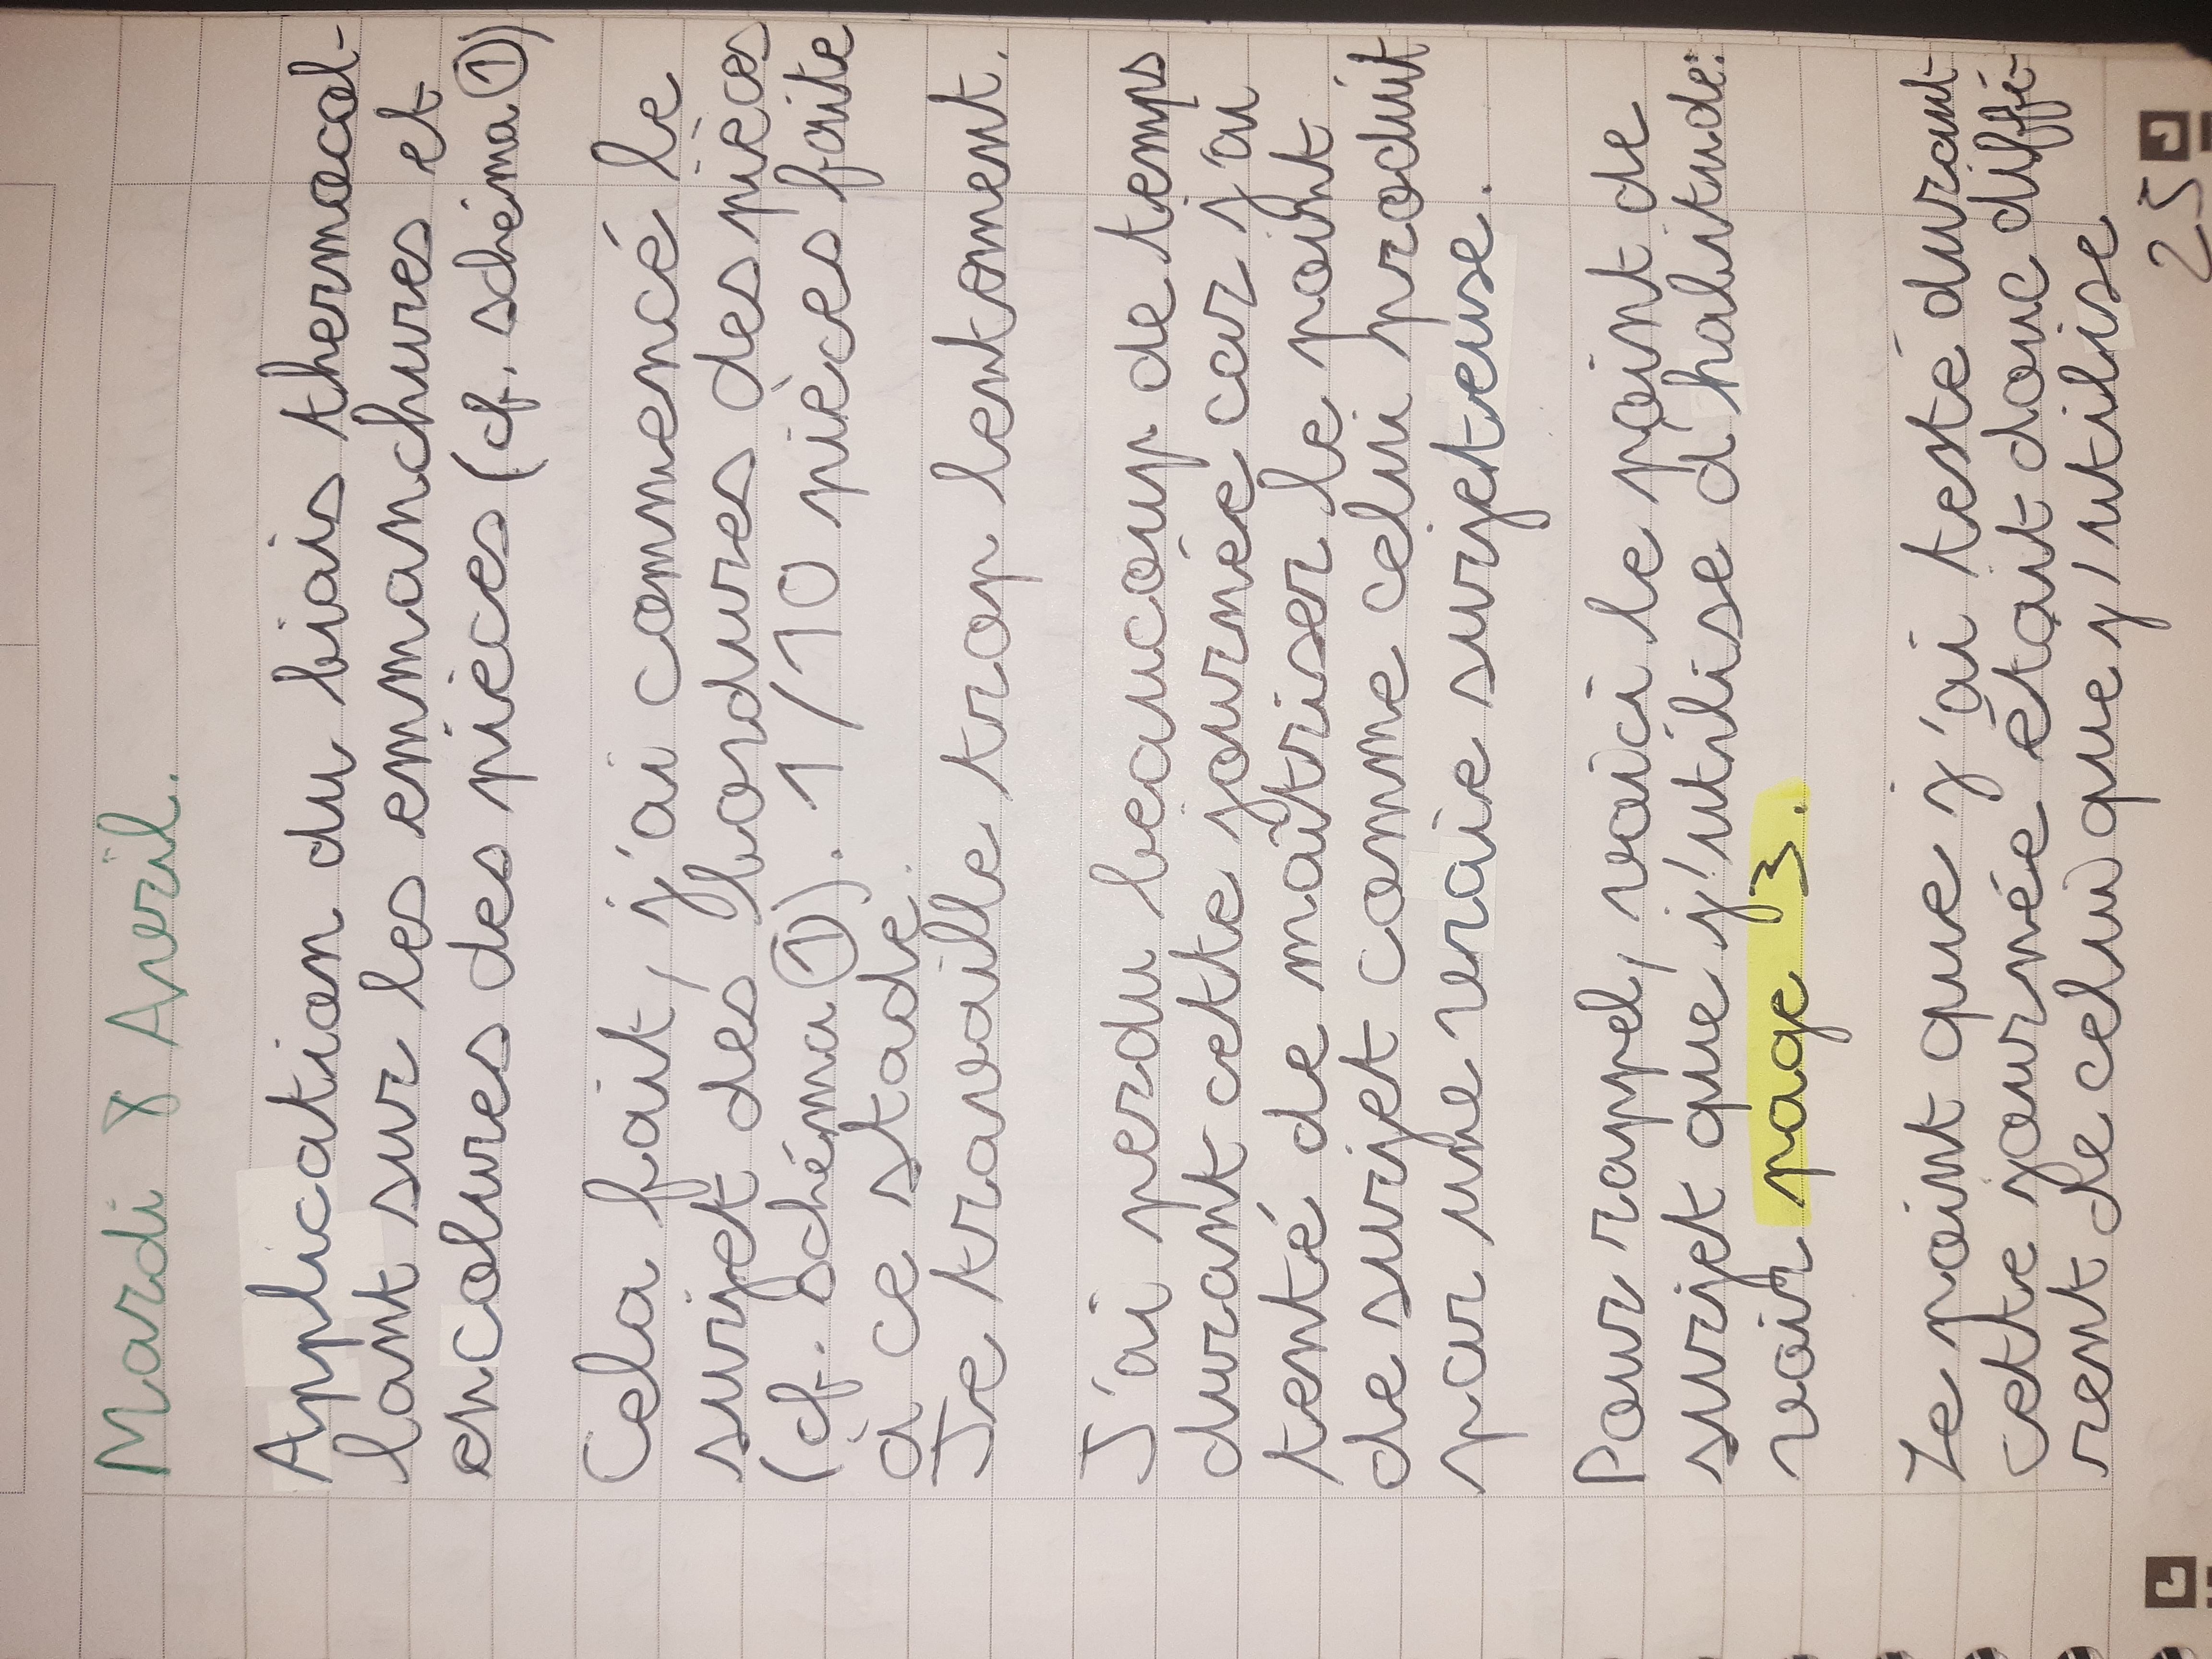 Mardi 8 Avril.
Application du biais thermocol-
lant sur les emmanchures et
encolures des pièces (cf. schéma ①)
Cela fait, j'ai commencé le
surjet des bordures des pièces
(cf. schéma ①). 1/10 pièces faite
à ce stade.
Je travaille trop lentement.
J'ai perdu beaucoup de temps
durant cette journée car j'ai
tenté de maîtriser le point
de surjet comme celui produit
par une vraie surjeteuse.
Pour rappel, voici le point de
surjet que j'utilise d'habitude:
voir page 3.
Le point que j'ai testé durant
cette journée était donc diffé-
rent de celui que j'utilise
25